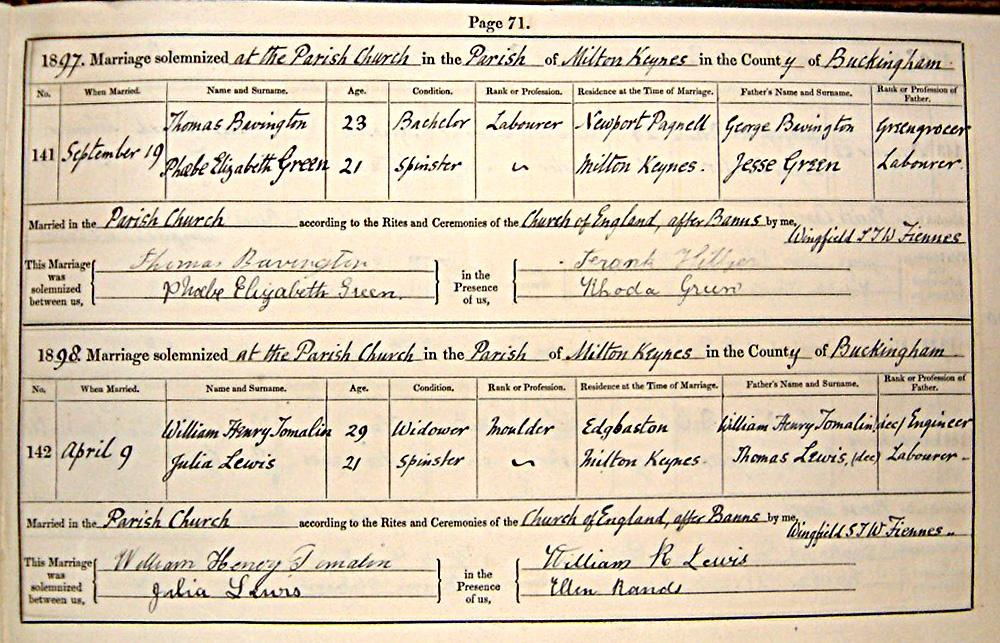 Page 71.
1897. Marriage solemnized at the Parish Church in the Parish of Milton Keynes in the County of Buckingham.
No. When Married. Name and Surname. Age. Condition. Rank or Profession. Residence at the Time of Marriage. Father's Name and Surname. Rank or Profession of Father.
Thomas Bavington 23 Bachelor Labourer Newport Pagnell George Bavington Greengrocer
141 September 19
Phœbe Elizabeth Green 21 Spinster ~ Milton Keynes. Jesse Green Labourer.
Married in the Parish Church according to the Rites and Ceremonies of the Church of England, after Banns by me,
Wingfield S T W Fiennes
This Marriage was solemnized between us, Thomas Bavington in the Presence of us, Frank
Phoebe Elizabeth Green. Rhoda Green
1898. Marriage solemnized at the Parish Church in the Parish of Milton Keynes in the County of Buckingham
No. When Married. Name and Surname. Age. Condition. Rank or Profession. Residence at the Time of Marriage. Father's Name and Surname. Rank or Profession of Father.
William Henry Tomalin 29 Widower Moulder Edgbaston William Henry Tomalin (dec) Engineer
142 April 9
Julia Lewis 21 Spinster ~ Milton Keynes. Thomas Lewis, (dec) Labourer -
Married in the Parish Church according to the Rites and Ceremonies of the Church of England, after Banns by me,
Wingfield S T W Fiennes..
This Marriage was solemnized between us, William Henry Tomalin in the Presence of us, William R Lewis
Julia Lewis Ellen Rands